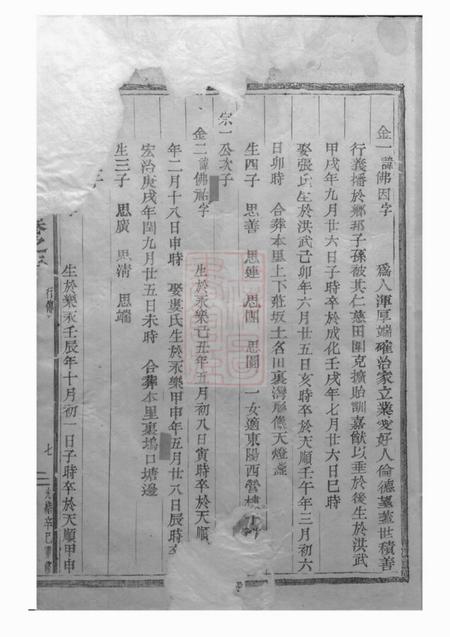 金一諱佛因字 爲人渾厚端確治家立業愛好人倫德望蓋世積善
行義播於鄉邦子孫被其仁慈田園克擴貽訓嘉猷以垂於後生於洪武
甲戌年九月廿六日子時卒於成化壬戌年七月廿六日巳時
娶張氏生於洪武己卯年六月廿五日亥時卒於天順壬午年三月初六
日卯時 合葬本里上下莊坂土名田裏灣形像天燈盞
生四子 思善 思連 思團 思圓 一女適東陽西營樓
宗一公次子
金二諱佛祐字 生於永樂己丑年五月初八日寅時卒於天順
年二月十八日申時 娶婁氏生於永樂甲申年五月廿八日辰時
宏治庚戌年閏九月廿五日未時 合葬本里裏塢口塘邊
生三子 思廣 思清 思端
子
生於永樂壬辰年十月初一日子時卒於天順甲申
卷之 行傳
七
辛巳重修